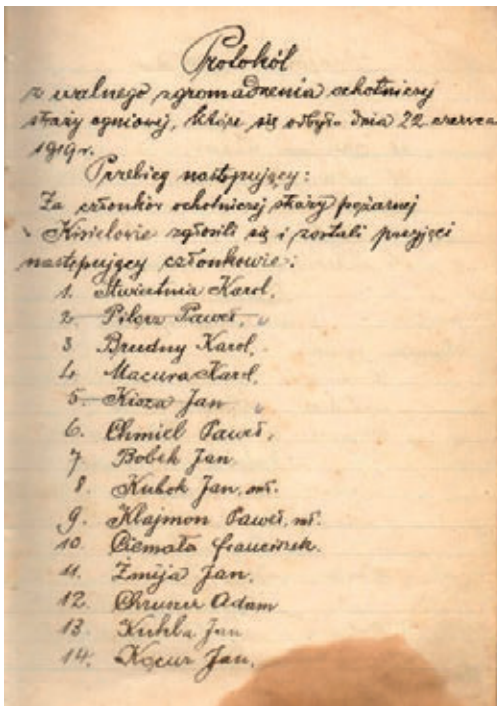 Protokół
z walnego zgromadzenia ochotniczej
straży ogniowej, które się odbyło dnia 22 czerwca
1919 r.
Przebieg następujący:
Za członków ochotniczej straży pożarnej
w Kisielowie zgłosili się i zostali przyjęci
następujący członkowie:
1. Stwiertnia Karol,
2. Pilerz Paweł,
3 Brudny Karol,
4. Macura Karol,
5. Kisza Jan
6. Chmiel Paweł,
7. Bobek Jan
8. Kubok Jan, mł.
9. Klajmon Paweł, mł.
10. Ciemała Franciszek.
11. Żmija Jan,
12. Adam
13. Jan
14. Kocur Jan,